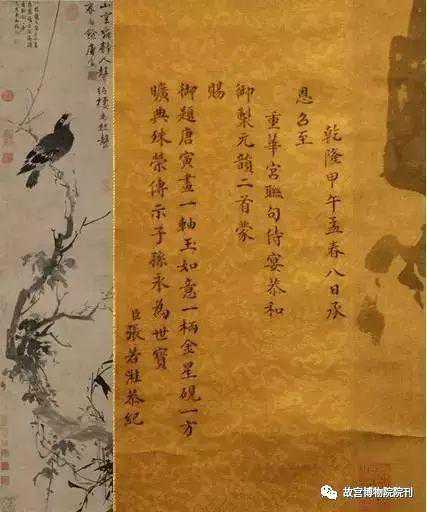 乾隆甲午孟春八日承
恩召至
重華宮聯句侍宴恭和
御製元韻二首蒙
賜
御題唐寅畫一軸玉如意一柄金星硯一方
曠典殊榮傳示子孫永為世寶
臣張若溎恭紀
山空寂靜人聲絕棲鳥數聲
春雨餘唐寅
故宫博物院院刊